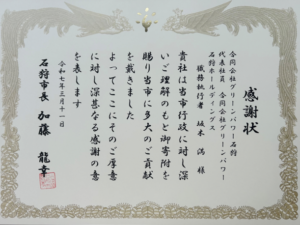 感謝状
合同会社グリーンパワー石狩
代表社員 合同会社グリーンパワー
石狩ホールディングス
職務執行者 坂木 満 様
貴社は当市行政に対し深
いご理解のもと御寄附を
賜り当市に多大のご貢献
を戴きました
よってここにそのご厚意
に対し深甚なる感謝の意
を表します
令和七年三月十一日
石狩市長 加藤 龍幸